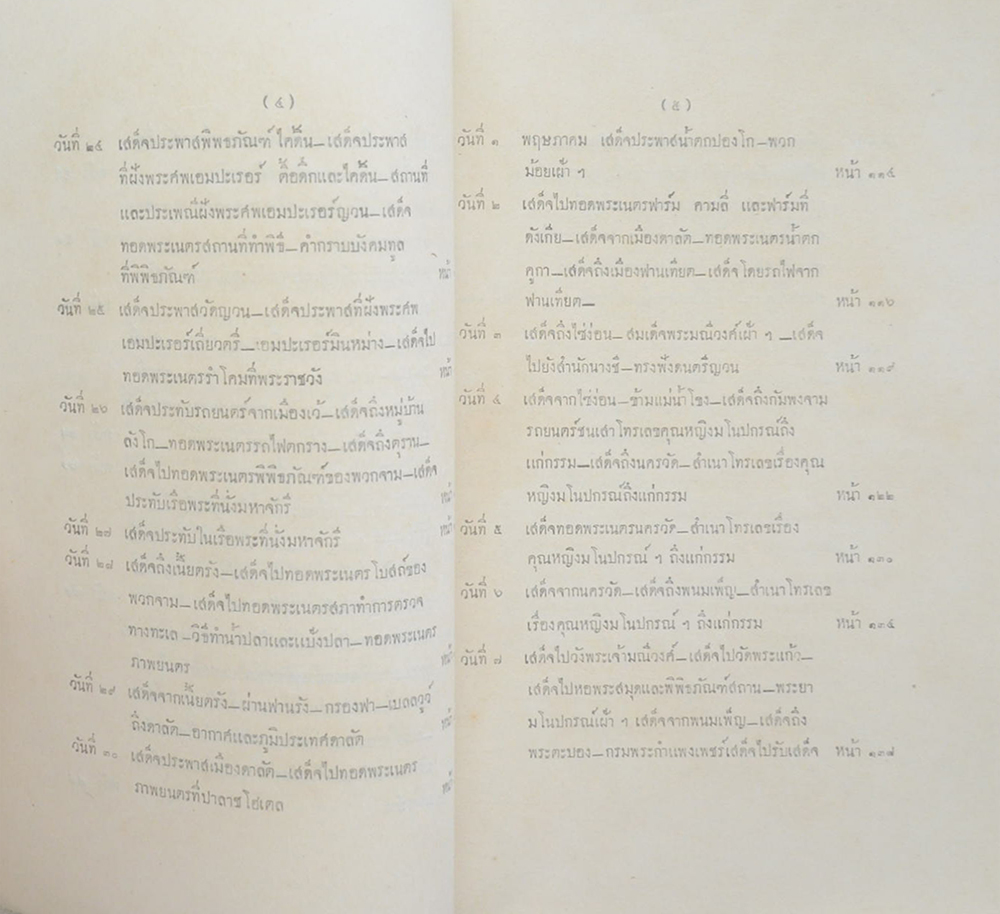 ( ๔ )
วันที่ ๒๔ เสด็จประพาสพิพิธภัณฑ์ ไคดิ่น—เสด็จประพาส
ที่ฝังพระศพเอมปะเรอร์ ตือดึกและไคดิ่น—สถานที่
และประเพณีฝังพระศพเอมปะเรอร์ญวน—เสด็จ
ทอดพระเนตรสถานที่ทำพิธี—คำกราบบังคมทูล
ที่พิพิธภัณฑ์
วันที่ ๒๕ เสด็จประพาสวัดญวน—เสด็จประพาสที่ฝังพระศพ
เอมปะเรอร์เถี่ยวตรี—เอมปะเรอร์มินหม่าง—เสด็จไป
ทอดพระเนตรรำโคมที่พระราชวัง
วันที่ ๒๖ เสด็จประทับรถยนตร์จากเมืองเว้—เสด็จถึงหมู่บ้าน
ลังโก—ทอดพระเนตรรถไฟตกราง—เสด็จถึงตุราน—
เสด็จไปทอดพระเนตรพิพิธภัณฑ์ของพวกจาม—เสด็จ
ประทับเรือพระที่นั่งมหาจักรี
วันที่ ๒๗ เสด็จประทับในเรือพระที่นั่งมหาจักรี
วันที่ ๒๘ เสด็จถึงเนียตรัง—เสด็จไปทอดพระเนตรโบสถ์ของ
พวกจาม—เสด็จไปทอดพระเนตรสภาทำการตรวจ
ทางทะเล—วิธีทำน้ำปลาและแบ้งปลา—ทอดพระเนตร
ภาพยนตร
วันที่ ๒๙ เสด็จจากเนียตรัง—ผ่านฟานรัง—กรองฟา—เบลลวูว์
ถึงดาลัด—อากาศและภูมิประเทศดาลัด
วันที่ ๓๐ เสด็จประพาสเมืองดาลัด—เสด็จไปทอดพระเนตร
ภาพยนตรที่ปาลาซโฮเตล
( ๕ )
วันที่ ๑ พฤษภาคม เสด็จประพาสน้ำตกปองโก—พวก
ม้อยเฝ้า ฯ หน้า ๑๑๕
วันที่ ๒ เสด็จไปทอดพระเนตรฟาร์ม คามลี่ และฟาร์มที่
ดังเกีย—เสด็จจากเมืองดาลัด—ทอดพระเนตรน้ำตก
คูกา—เสด็จถึงเมืองฟานเทียต—เสด็จโดยรถไฟจาก
ฟานเทียต— หน้า ๑๑๖
วันที่ ๓ เสด็จถึงไซ่ง่อน—สมเด็จพระมณีวงศ์เฝ้า ฯ —เสด็จ
ไปยังสำนักนางชี—ทรงฟังดนตรีญวน หน้า ๑๑๙
วันที่ ๔ เสด็จจากไซ่ง่อน—ข้ามแม่น้ำโขง—เสด็จถึงกัมพงจาม
รถยนตร์ชนเสาโทรเลขคุณหญิงมโนปกรณ์ถึง
แก่กรรม—เสด็จถึงนครวัด—สำเนาโทรเลขเรื่องคุณ
หญิงมโนปกรณ์ถึงแก่กรรม หน้า ๑๒๒
วันที่ ๕ เสด็จทอดพระเนตรนครวัด—สำเนาโทรเลขเรื่อง
คุณหญิงมโนปกรณ์ ฯ ถึงแก่กรรม หน้า ๑๓๐
วันที่ ๖ เสด็จจากนครวัด—เสด็จถึงพนมเพ็ญ—สำเนาโทรเลข
เรื่องคุณหญิงมโนปกรณ์ ฯ ถึงแก่กรรม หน้า ๑๓๔
วันที่ ๗ เสด็จไปวังพระเจ้ามณีวงศ์—เสด็จไปวัดพระแก้ว—
เสด็จไปหอพระสมุดและพิพิธภัณฑ์สถาน—พระยา
มโนปกรณ์เฝ้า ฯ เสด็จจากพนมเพ็ญ—เสด็จถึง
พระตะบอง—กรมพระกำแพงเพชร์เสด็จไปรับเสด็จ หน้า ๑๓๘